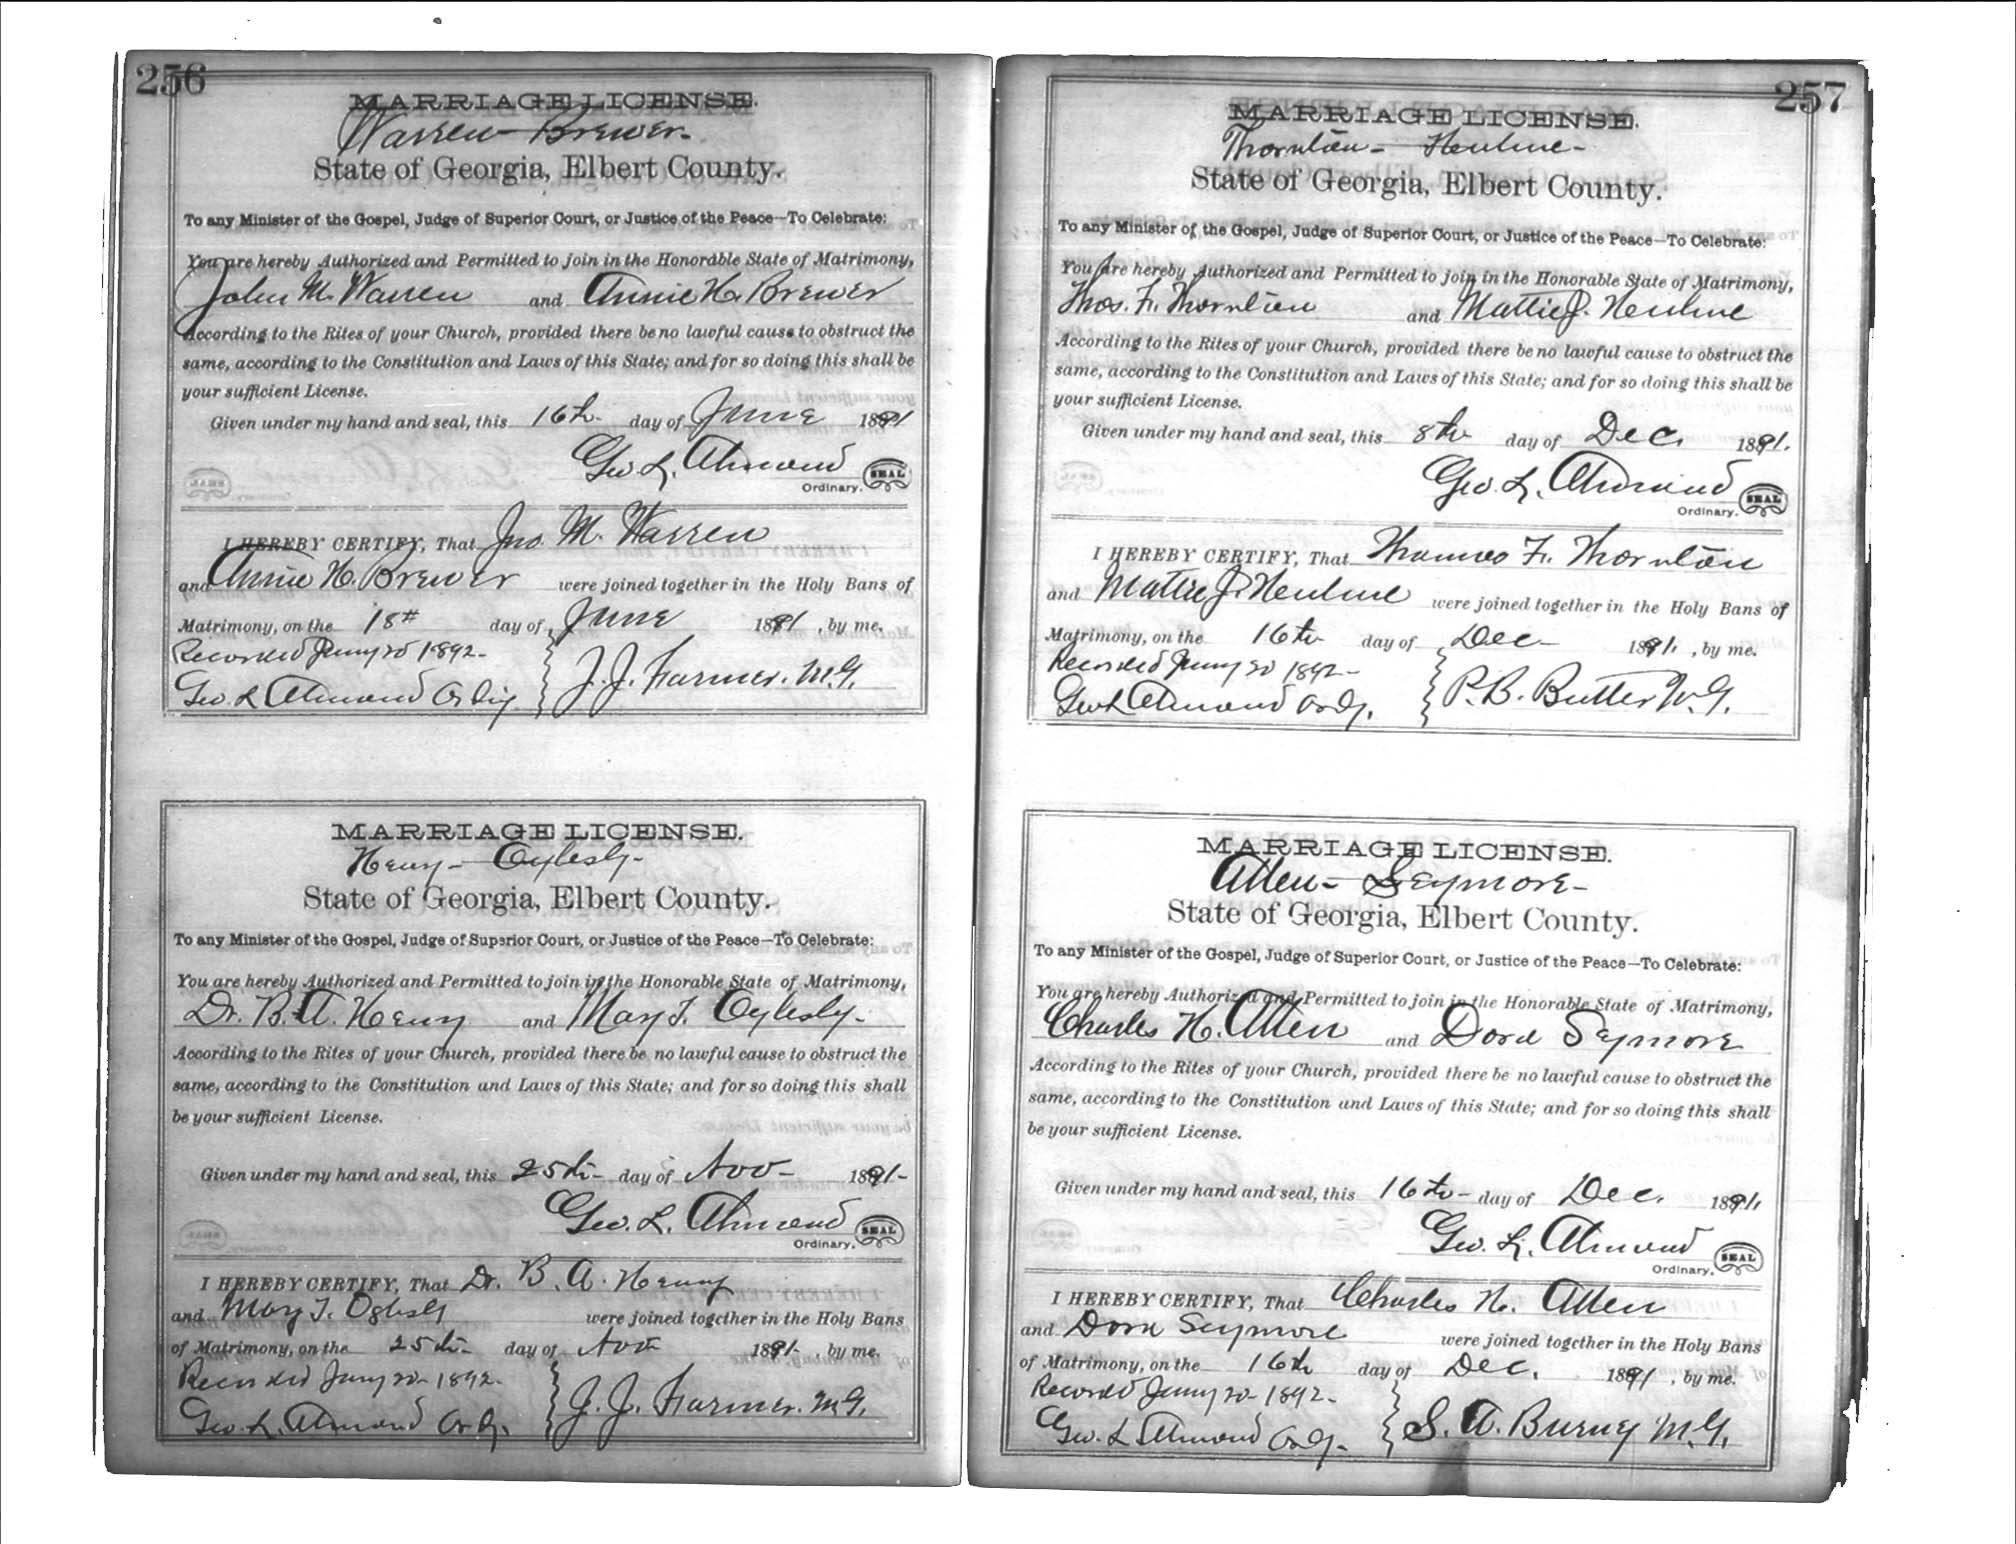 256
MARRIAGE LICENSE.
Warren - Brewer.
State of Georgia, Elbert County.
To any Minister of the Gospel, Judge of Superior Court, or Justice of the Peace—To Celebrate:
You are hereby Authorized and Permitted to join in the Honorable State of Matrimony,
John M. Warren and Annie H. Brewer
According to the Rites of your Church, provided there be no lawful cause to obstruct the
same, according to the Constitution and Laws of this State; and for so doing this shall be
your sufficient License.
Given under my hand and seal, this 16th day of June 1891
Geo. L. Almond SEAL
Ordinary.
I HEREBY CERTIFY, That Jno. M. Warren
and Annie H. Brewer were joined together in the Holy Bans of
Matrimony, on the 18th day of June 1891, by me.
Recorded Jany 20 1892-
Geo. L Almond Ordy. J. J. Farmer. M.G.
MARRIAGE LICENSE.
Henry - Oglesby -
State of Georgia, Elbert County.
To any Minister of the Gospel, Judge of Superior Court, or Justice of the Peace—To Celebrate:
You are hereby Authorized and Permitted to join in the Honorable State of Matrimony,
Dr. B. A. Henry and May T. Oglesby.
According to the Rites of your Church, provided there be no lawful cause to obstruct the
same, according to the Constitution and Laws of this State; and for so doing this shall
be your sufficient License.
Given under my hand and seal, this 25th day of Nov - 1891 -
Geo. L. Almond SEAL
Ordinary.
I HEREBY CERTIFY, That Dr. B. A. Henry
and May T. Oglesby were joined together in the Holy Bans
of Matrimony, on the 25th day of Nov 1891, by me.
Recorded Jany 20 - 1892.
Geo. L. Almond Ordy. J. J. Farmer. M.G.
257
MARRIAGE LICENSE.
Thornton -
State of Georgia, Elbert County.
To any Minister of the Gospel, Judge of Superior Court, or Justice of the Peace—To Celebrate:
You are hereby Authorized and Permitted to join in the Honorable State of Matrimony,
Thos. F. Thornton and Mattie J.
According to the Rites of your Church, provided there be no lawful cause to obstruct the
same, according to the Constitution and Laws of this State; and for so doing this shall be
your sufficient License.
Given under my hand and seal, this 8th day of Dec. 1891.
Geo. L. Almond SEAL
Ordinary.
I HEREBY CERTIFY, That Thomas F. Thornton
and Mattie J. were joined together in the Holy Bans of
Matrimony, on the 16th day of Dec - 1891, by me.
Recorded Jany 20 1892-
Geo L Almond Ordy. P. B. Butler M.G.
MARRIAGE LICENSE.
Allen - Seymore -
State of Georgia, Elbert County.
To any Minister of the Gospel, Judge of Superior Court, or Justice of the Peace—To Celebrate:
You are hereby Authorized and Permitted to join in the Honorable State of Matrimony,
Charles H. Allen and Dora Seymore
According to the Rites of your Church, provided there be no lawful cause to obstruct the
same, according to the Constitution and Laws of this State; and for so doing this shall
be your sufficient License.
Given under my hand and seal, this 16th - day of Dec. 1891,
Geo. L. Almond SEAL
Ordinary.
I HEREBY CERTIFY, That Charles H. Allen
and Dora Seymore were joined together in the Holy Bans
of Matrimony, on the 16th day of Dec. 1891, by me.
Recorded Jany 20 - 1892-
Geo. L Almond Ordy - S. A. Burney M.G.